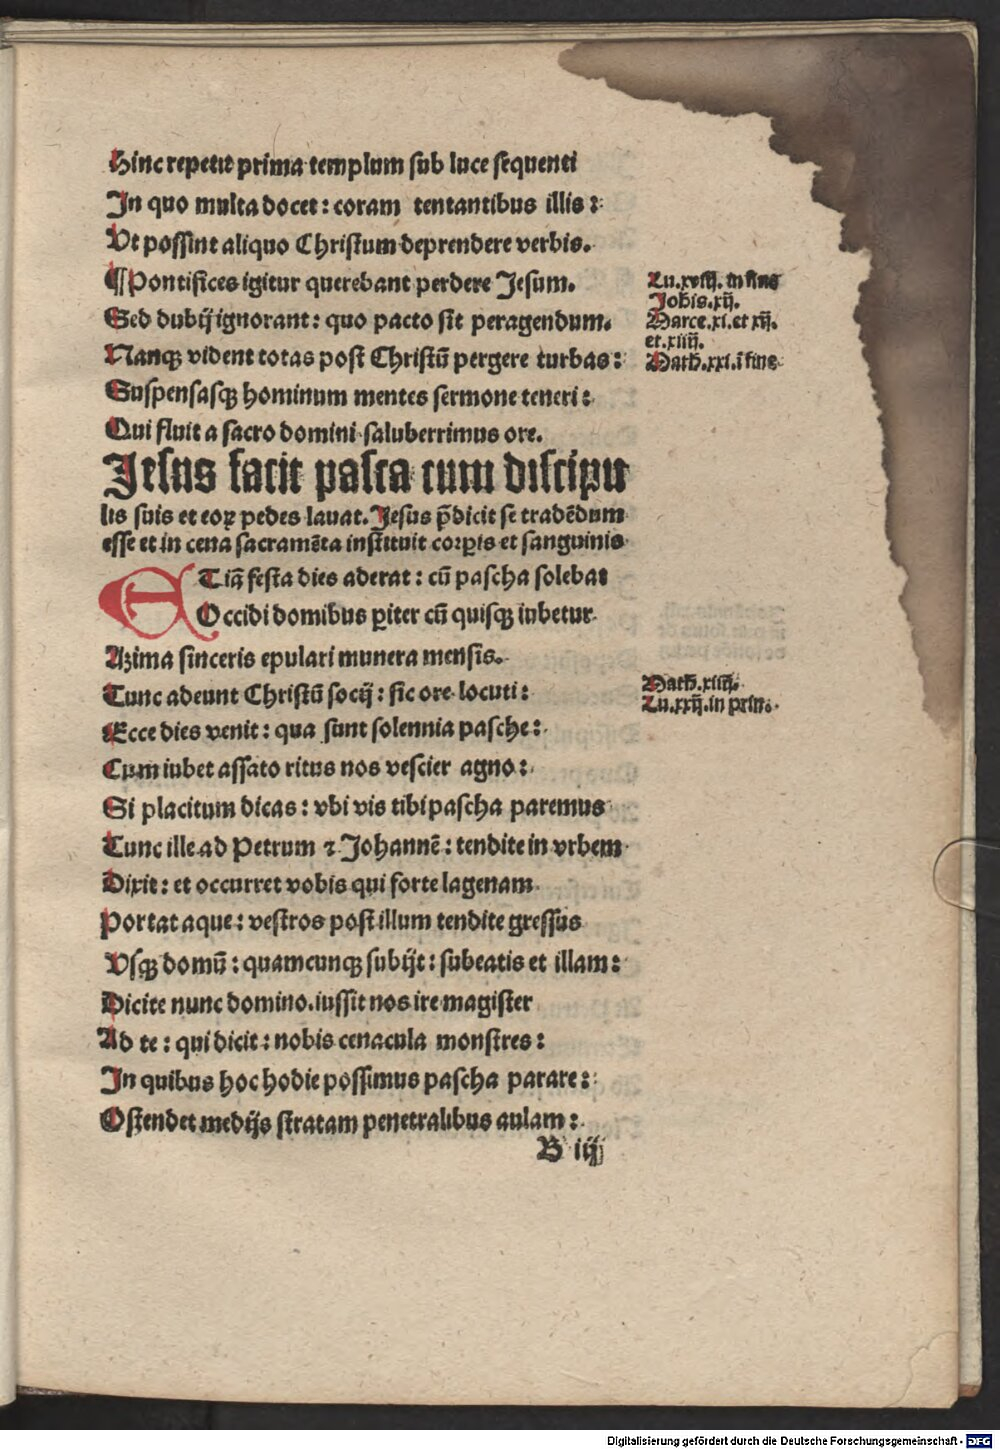 Hinc repetit prima templum sub luce sequenti
In quo multa docet: coram tentantibus illis:
Ut possint aliquo Christum deprendere verbis.
¶Pontifices igitur querebant perdere Jesum.
Sed dubij ignorant: quo pacto sit peragendum.
Nanqꝫ vident totas post Christū pergere turbas:
Suspensasqꝫ hominum mentes sermone teneri:
Qui fluit a sacro domini saluberrimus ore.
Lu.xviij. in fine
Johis.xij.
Marce.xi.et xij.
et.xiiij.
Math.xxi.ī fine
Jesus facit pasca cum discipu
lis suis et eoꝝ pedes lauat. Jesus p̄dicit se tradēdum
esse et in cena sacramēta instituit corꝑis et sanguinis
ETiā festa dies aderat: cū pascha solebat
Occidi domibus ꝑiter cū quisqꝫ iubetur
Azima sinceris epulari munera mensis.
Tunc adeunt Christū socij: sic ore locuti:
Ecce dies venit: qua sunt solennia pasche:
Cum iubet assato ritus nos vescier agno:
Si placitum dicas: vbi vis tibi pascha paremus
Tunc ille ad Petrum ⁊ Johannē: tendite in vrbem
Dixit: et occurret vobis qui forte lagenam
Portat aque: vestros post illum tendite gressus
Vsqꝫ domū: quamcunqꝫ subijt: subeatis et illam:
Dicite nunc domino. iussit nos ire magister
Ad te: qui dicit: nobis cenacula monstres:
In quibus hoc hodie possimus pascha parare:
Ostendet medijs stratam penetralibus aulam:
Math.xiiij.
Lu.xxij.in prin.
B iij
Digitalisierung gefördert durch die Deutsche Forschungsgemeinschaft - DFG